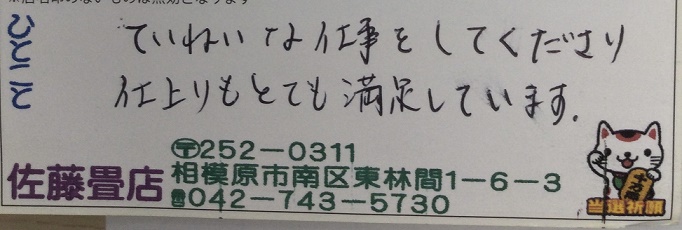 ひとこと
ていねいな仕事をしてくださり
仕上りもとても満足しています.
〒252-0311
佐藤畳店
相模原市南区東林間1-6-3
☎042-743-5730
当選祈願